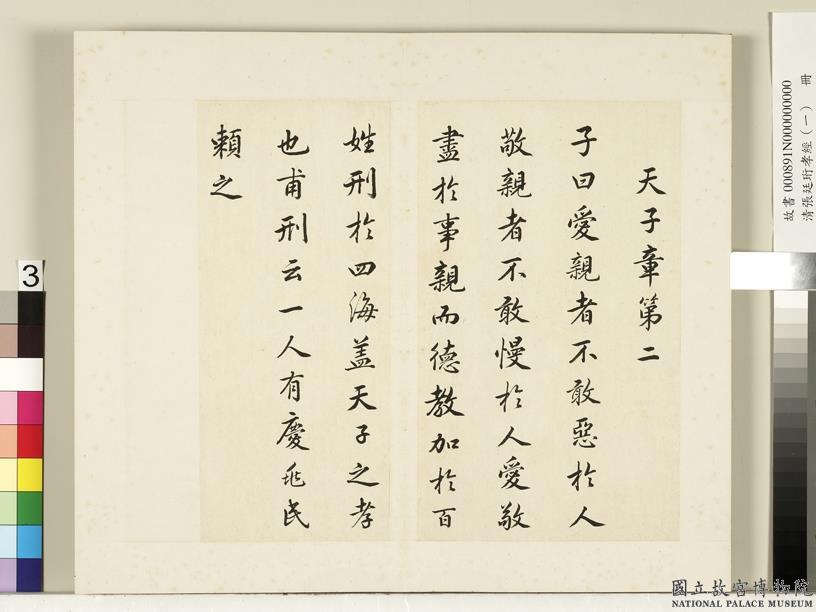 天子章第二
子曰愛親者不敢惡於人
敬親者不敢慢於人愛敬
盡於事親而德教加於百
姓刑於四海盖天子之孝
也甫刑云一人有慶兆民
賴之
3
故書 000891N000000000000 冊
清張廷珩孝經（一）
國立故宮博物院
NATIONAL PALACE MUSEUM